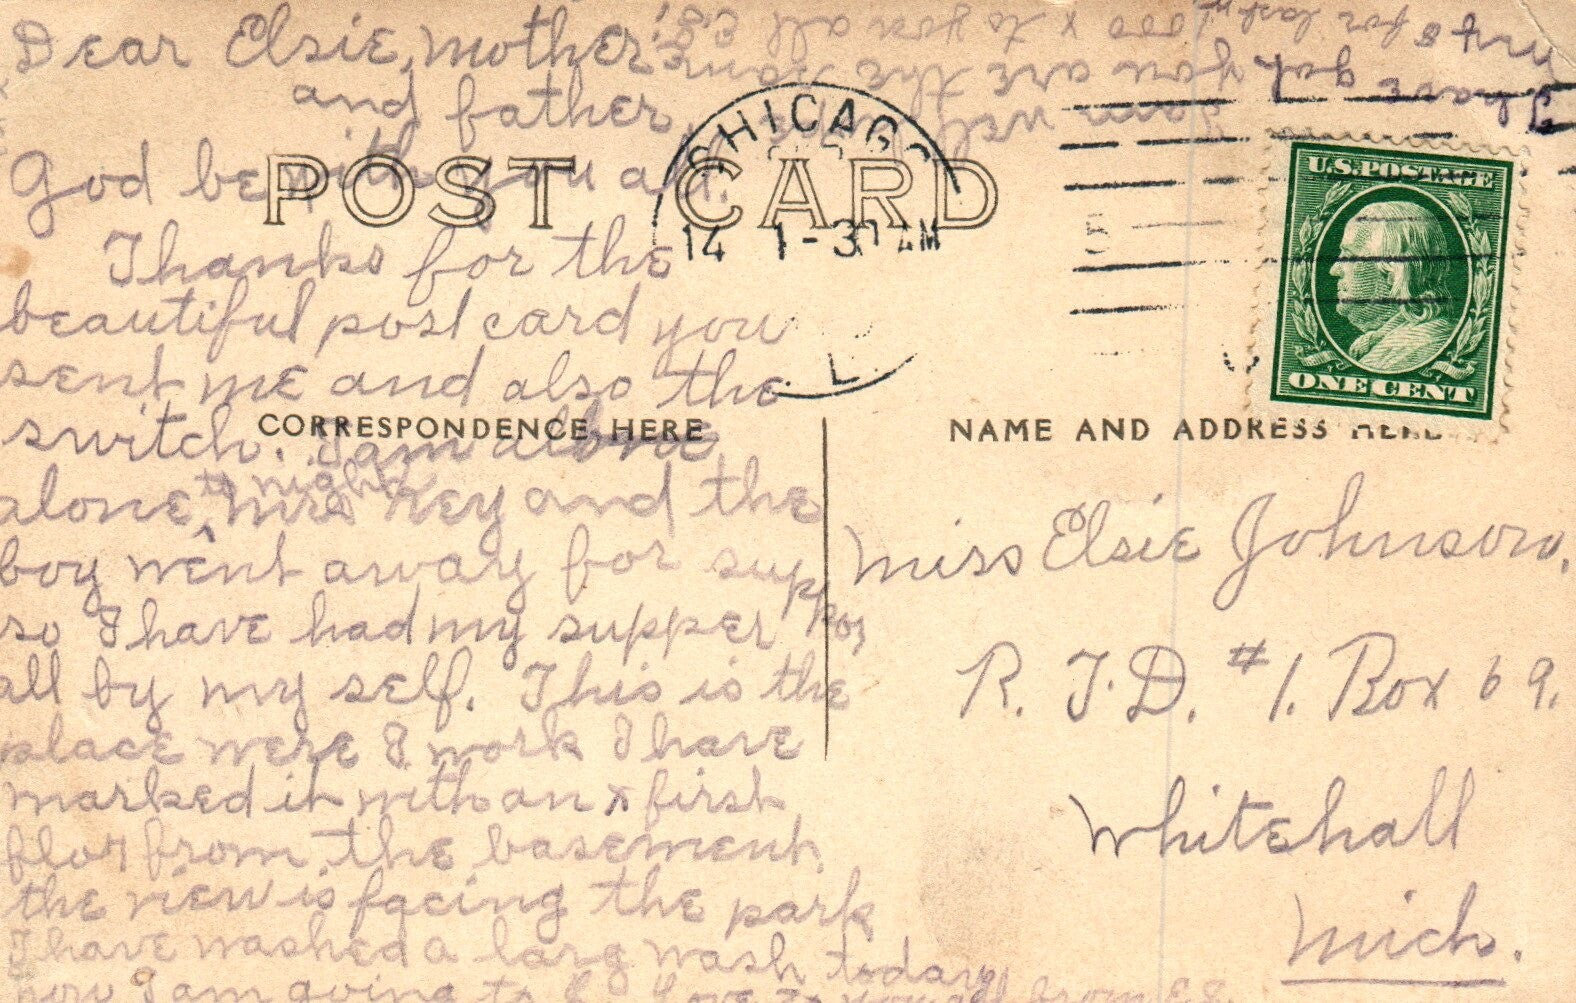 Dear Elsie, mother
and father,
God be with you all.
Thanks for the
beautiful post card you
sent me and also the
switch. I am alone
alone to night Mrs Key and the
boy went away for supp
so I have had my supper
all by my self. This is the
place were I work I have
marked it with an x first
flor from the basement
the view is facing the park
I have washed a larg wash today
now I am going to
Love to you all from E.S.
I have got
I am well hope you are the same
000 x to you all E.S.
POST CARD
CORRESPONDENCE HERE
CHICAGO
14 1-30 AM
L.
5
U.S. POSTAGE
ONE CENT
NAME AND ADDRESS HERE
Miss Elsie Johnson,
R. F. D. #1. Box 69.
Whitehall
Mich.